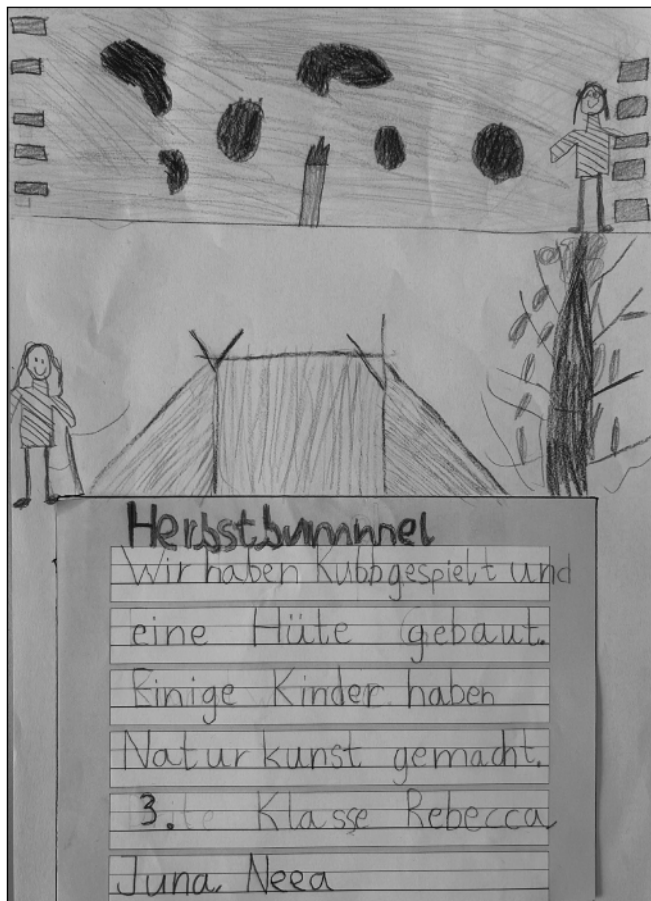 Herbstbummel
Wir haben Kubbgespielt und
eine Hüte gebaut.
Einige Kinder haben
Naturkunst gemacht.
3. Klasse Rebecca
Juna, Neea